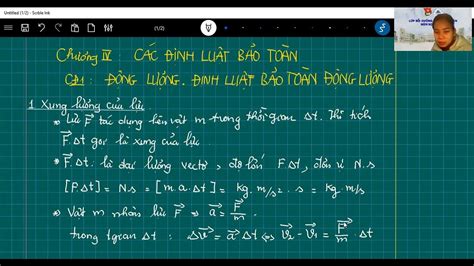 Untitled (1/2) - Scrble Ink
(1/2)
Chương IV CÁC ĐỊNH LUẬT BẢO TOÀN
: ĐỘNG LƯỢNG. ĐỊNH LUẬT BẢO TOÀN ĐỘNG LƯỢNG
1. Xung lượng của lực:
* Lực F⃗ tác dụng lên vật m trong thời gian Δt. Thì tích
F⃗.Δt gọi là xung của lực.
* F⃗.Δt: là đại lượng vectơ, độ lớn F.Δt, đơn vị N.s
[F.Δt] = N.s = [m.a.Δt] = kg.m/s².s = kg.m/s
* Vật m nhận lực F⃗ ⇒ a⃗ = F⃗/m.
trong tgian Δt: Δv⃗ = a⃗.Δt ⇔ v⃗₂ - v⃗₁ = F⃗/m . Δt